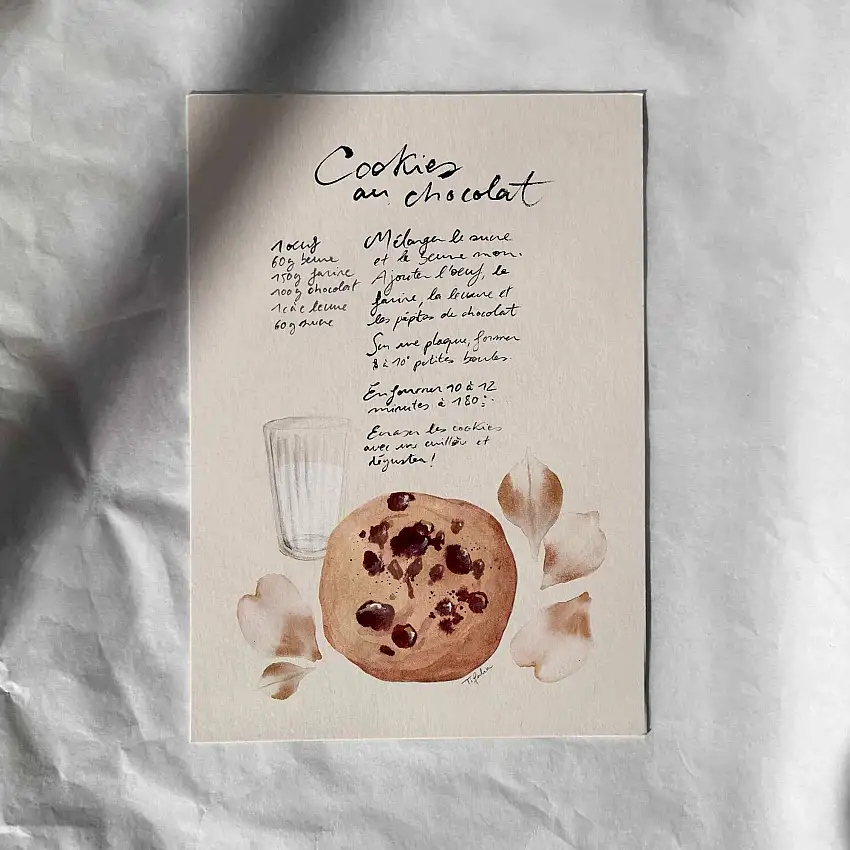 Cookies
au chocolat
1 oeuf
60g beurre
150g farine
100g chocolat
1 càc levure
60g sucre
Mélanger le sucre
et le beurre mou.
Ajouter l'oeuf, la
farine, la levure et
les pépites de chocolat
Sur une plaque, former
8 à 10 petites boules.
Enfourner 10 à 12
minutes à 180°.
Ecraser les cookies
avec une cuillère et
déguster!